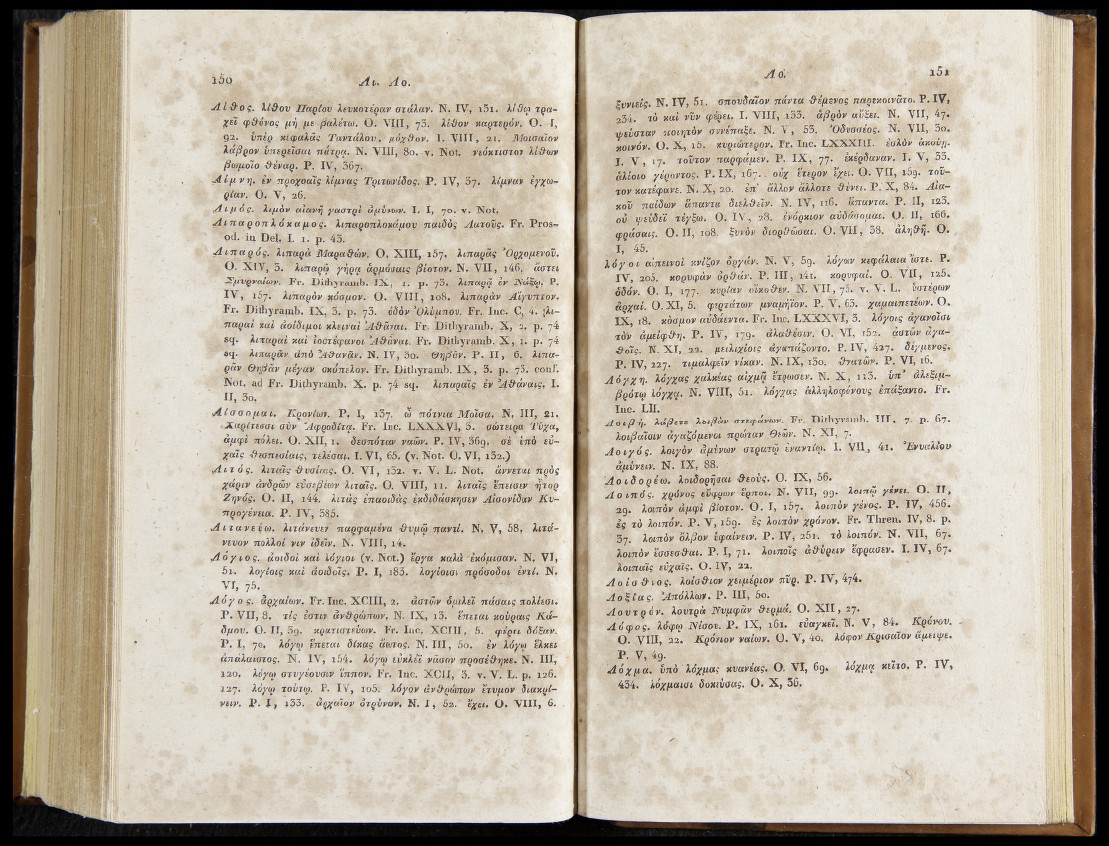 150 Λι. Λο.
Λίθος. λίθου Παρίου λευκοτέραν στάλαν. N. IV, 131. λίθῳ τρα-
χεῖ φθόνος μὴ με βαλέτω. O. VIII, 73. λίθον καρτερόν. O. I,
92. ὑπὲρ κεφαλᾶς Ταντάλου, μόχθον. I. VIII, 21. Μοισαῖον
λάβρον ὑπερεῖσαι πάτρᾳ. N. VIII, 80. v. Not. νεόκτιστον λίθων
βωμοῖο θέναρ. P. IV, 367.
Λίμνη. ἐν προχοαῖς λίμνας Τριτωνίδος. P. IV, 37. λίμναν ἐγχω-
ρίαν. O. V, 26.
Λιμός. λιμὸν αἰανῆ γαστρὶ ἀμύνων. I. I, 70. v. Not.
Λιπαροπλόκαμος. λιπαροπλοκάμου παιδὸς Λατοῦς. Fr. Pros-
od. in Del. I. 1. p. 43.
Λιπαρός. λιπαρὰ Μαραθών. O. XIII, 157. λιπαρᾶς Ὀρχομενοῦ.
O. XIV, 3. λιπαρῷ γήρᾳ ἁρμόσαις βίοτον. N. VII, 146. ἄστει
Σμυρναίων. Fr. Dithyramb. IX, 1. p. 73. λιπαρᾷ ἐν Νάξῳ. P.
IV, 157. λιπαρὸν κόσμον. O. VIII, 108. λιπαρὰν Αἴγυπτον.
Fr. Dithyramb. IX, 3. p. 73. ὁδὸν Ὀλύμπου. Fr. Inc. C, 4. λι-
παραὶ καὶ ἀοίδιμοι κλειναὶ Ἀθᾶναι. Fr. Dithyramb. X, 2. p. 74
sq. λιπαραὶ καὶ ἰοστέφανοι Ἀθᾶναι. Fr. Dithyramb. X, 1. p. 74
sq. λιπαρᾶν ἀπὸ Ἀθανᾶν. N. IV, 30. Θηβᾶν. P. II, 6. λιπα-
ρᾶν Θηβᾶν μέγαν σκόπελον. Fr. Dithyramb. IX, 3. p. 73. conf.
Not. ad Fr. Dithyramb. X. p. 74 sq. λιπαραῖς ἐν Ἀθάναις. I.
II, 30.
Λίσσομαι. Κρονίων. P. I, 137. ὦ πότνια Μοῖσα. N. III, 21.
Χαρίτεσσι σὺν Ἀφροδίτᾳ. Fr. Inc. LXXXVI, 3. σώτειρα Τύχα,
ἀμφὶ πόλει. O. XII, 1. δεσπόταν ναῶν. P. IV, 369. σὲ ὑπὸ εὐ-
χαῖς θεσπεσίαις, τελέσαι. I. VI, 65. (v. Not. O. VI, 152.)
Λιτός. λιτᾶς θυσίας. O. VI, 132. v. V. L. Not. ἄννεται πρὸς
χάριν ἀνδρῶν εὐσεβέων λιταῖς. O. VIII, 11. λιταῖς ἔπεισεν ἦτορ
Ζηνός. O. II, 144. λιτὰς ἐπαοιδὰς ἐκδιδάσκησεν Αἰσονίδαν Κυ-
προγένεια. P. IV, 385.
Λιτανεύω. λιτάνευεν παρφαμένα θυμῷ παντί. N. V, 58. λιτά-
νευον πολλοί νιν ἰδεῖν. N. VIII, 14.
Λόγιος. ἀοιδοὶ καὶ λόγιοι (v. Not.) ἔργα καλὰ ἐκόμισαν. N. VI,
51. λογίοις καὶ ἀοιδοῖς. P. I, 183. λογίοισι πρόσοδοι ἐντί. N.
VI, 75.
Λόγος. ἀρχαίων. Fr. Inc. XCIII, 2. ἀστῶν ὁμιλεῖ πάσαις πολίεσι.
P. VII, 8. τίς ἐστιν ἀνθρώπων. N. IX, 13. ἕπεται κούραις Κά-
δμου. O. II, 39. κρατιστεύων. Fr. Inc. XCIII, 5. φέρει δόξαν.
P. I, 70. λόγῳ ἕπεται δίκας ἄωτος. N. III, 50. ἐν λόγῳ ἕλκει
ἀπάλαιστος. N. IV, 154. λόγῳ εὐκλεῖ νᾶσον προσέθηκε. N. III,
120. λόγῳ στυγέουσιν ἵππον. Fr. Inc. XCII, 3. v. V. L. p. 126.
127. λόγῳ τούτῳ. P. IV, 105. λόγον ἀνθρώπων ἔτυμον διακρί-
νειν. P. I, 133. ἀρχαῖον ὀτρύνων. N. I, 52. ἔχει. O. VIII, 6.
Λό. 151
ξυνιείς. N. IV, 51. σπουδαῖον πάντα θέμενος παρεκοινᾶτο. P. IV,
234. τὸ καὶ νῦν φέρει. I. VIII, 133. ἁβρὸν αὔξει. N. VII, 47.
ψεύσταν ποιητὸν συνέπαξε. N. V, 53. Ὀδυσσέος. N. VII, 30.
κοινόν. O. X, 15. κυριώτερον. Fr. Inc. LXXXIII. ἐσλὸν ἀκούῃ.
I. V, 17. τοῦτον παρφάμεν. P. IX, 77. ἐκέρδαναν. I. V, 33.
ἁλίοιο γέροντος. P. IX, 167. οὐχ ἕτερον ἔχει. O. VII, 159. τοῦ-
τον κατέφανε. N. X, 20. ἐπ' ἄλλον ἄλλοτε θύνει. P. X, 84. Αἰα-
κοῦ παίδων ἅπαντα διελθεῖν. N. IV, 116. ἅπαντα. P. II, 123.
οὐ ψεύδεϊ τέγξω. O. IV, 28. ἐνόρκιον αὐδάσομαι. O. II, 166.
φράσαις. O. II, 108. ξυνὸν διορθῶσαι. O. VII, 38. ἀληθῆ. O.
I, 45.
λόγοι αἰπεινοὶ κνίζον ὀργάν. N. V, 59. λόγων κεφάλαια ἴστε. P.
IV, 205. κορυφὰν ὀρθάν. P. III, 141. κορυφαί. O. VII, 125.
ὁδόν. O. I, 177. κυρίαν οἴκοθεν. N. VII, 75. v. V. L. ὑστέρων
ἀρχαί. O. XI, 5. φερτάτων μναμήϊον. P. V, 63. χαμαιπετέων. O.
IX, 18. κόσμον αὐδάεντα. Fr. Inc. LXXXVI, 3. λόγοις ἀγανοῖσι
τὸν ἀμείφθη. P. IV, 179. ἀλαθέσιν. O. VI, 152. ἀστῶν ἀγα-
θοῖς. N. XI, 22. μειλιχίοις ἀγαπάζοντο. P. IV, 427. δίγμενος.
P. IV, 227. τιμαλφεῖν νίκαν. N. IX, 130. θνατῶν. P. VI, 16.
Λόγχη. λόγχας χαλκέας αἰχμᾷ ἔτρωσεν. N. X, 113. ὑπ' ἀλεξιμ-
βρότῳ λόγχᾳ. N. VIII, 51. λόγχας ἀλληλοφόνους ἐπάξαντο. Fr.
Inc. LII.
Λοιβή. λάβετε λοιβᾶν στεφάνων. Fr. Dithyramb. III. 7. p. 67.
λοιβαῖσιν ἀγαζόμενοι πρώταν Θεῶν. N. XI, 7.
Λοιγός. λοιγὸν ἀμύνων στρατῷ ἐναντίῳ. I. VII, 41. Ἐνυαλίου
ἀμύνειν. N. IX, 88.
Λοιδορέω. λοιδορῆσαι θεούς. O. IX, 56.
Λοιπός. χρόνος εὔφρων ἕρποι. N. VII, 99. λοιπῷ γένει. O. II,
29. λοιπὸν ἀμφὶ βίοτον. O. I, 157. λοιπὸν γένος. P. IV, 456.
ἐς τὸ λοιπόν. P. V, 159. ἐς λοιπὸν χρόνον. Fr. Thren. IV, 8. p.
37. λοιπὸν ὄλβον ὑφαίνειν. P. IV, 251. τὸ λοιπόν. N. VII, 67.
λοιπὸν ἔσσεσθαι. P. I, 71. λοιποῖς ἀθύρειν ἔφρασεν. I. IV, 67.
λοιπαῖς εὐχαῖς. O. IV, 22.
Λοίσθιος. λοίσθιον χειμέριον πῦρ. P. IV, 474.
Λοξίας. Ἀπόλλων. P. III, 50.
Λουτρόν. λουτρὰ Νυμφᾶν θερμά. O. XII, 27.
Λόφος. λόφῳ Νίσου. P. IX, 161. εὐαγκεῖ. N. V, 84. Κρόνου.
O. VIII, 22. Κρόνιον ναίων. O. V, 40. λόφον Κρισαῖον ἄμειψε.
P. V, 49.
Λόχμα. ὑπὸ λόχμας κυανέας. O. VI, 69. λόχμᾳ κεῖτο. P. IV,
434. λόχμαισι δοκεύσας. O. X, 36.